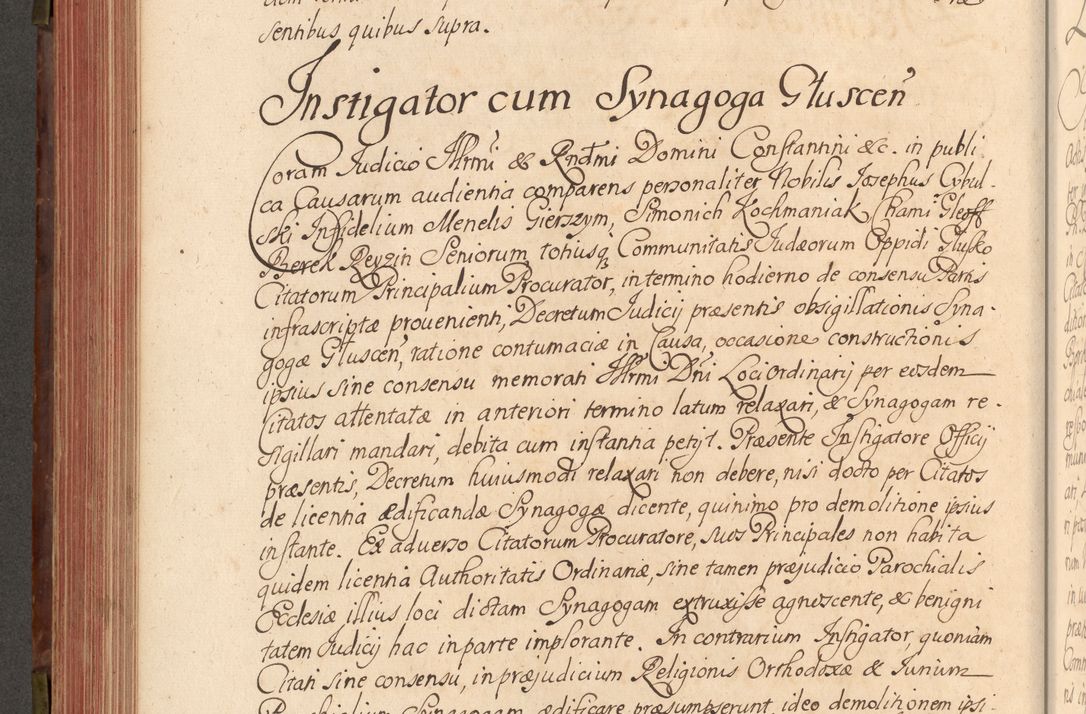 sentibus quibus supra.
Instigator cum Synagoga Gluscen̄
Coram Judicio Illrmi & Rndmi Domini Constantini &c. in publi
ca Causarum audientia comparens personaliter Nobilis Josephus Cybul-
ski Infidelium Menelis Gierszym, Simonich Kochmaniak, Chami
Berek Reyzin Seniorum totiusq Communitatis Judæorum Oppidi Glusko
Citatorum Principalium Procurator, in termino hodierno de consensu Partis
infrascriptæ provenienti, Decretum Judicij præsentis obsigillationis Syna-
gogæ Gluscen̄, ratione contumaciæ in Causa, occasione constructionis
ipsius sine consensu memorati Illrmi Dni Loci Ordinarij per eosdem
Citatos attentatæ in anteriori termino latum relaxari, & Synagogam re-
sigillari mandari, debita cum instantia petijt. Præsente Instigatore Officij
præsentis, Decretum huiusmodi relaxari non debere, nisi docto per Citatos
de licentia ædificandæ Synagogæ dicente, quinimo pro demolitione ipsius
instante. Ex adverso Citatorum Procuratore, suos Principales non habita
quidem licentia Authoritatis Ordinariæ, sine tamen præjudicio Parochialis
Ecclesiæ illius loci dictam Synagogam extruxisse agnoscente, & benigni
tatem Judicij hac in parte implorante. In contrarium Instigator, quoniam
Citati sine consensu, in præjudicium Religionis Orthodoxæ & Jurium
Parochialium Synagogam ædificare præsumpserunt, ideo demolitionem ipsi-